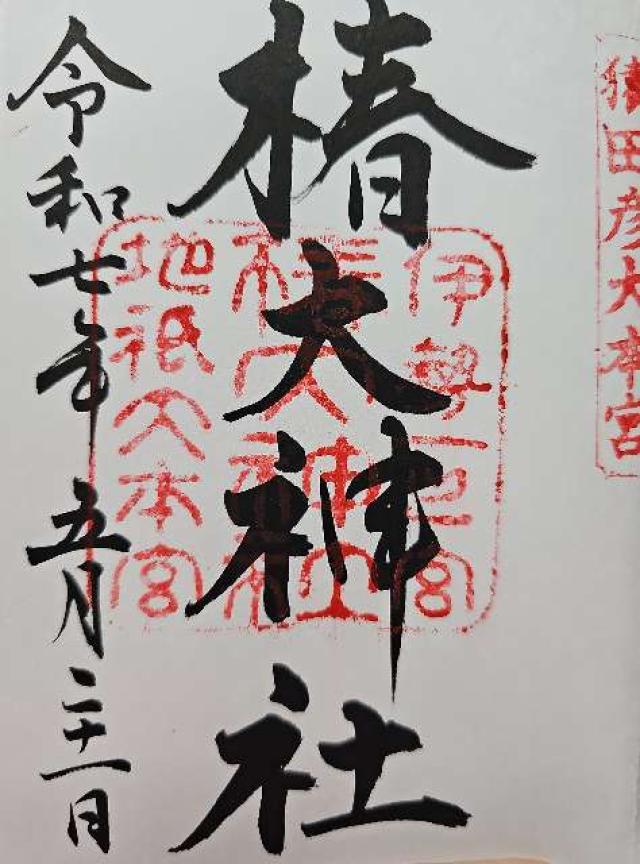 猿田彦大本宮
椿大神社
伊勢一之宮
椿大神社
地祇大本宮
令和七年 五月二十一日